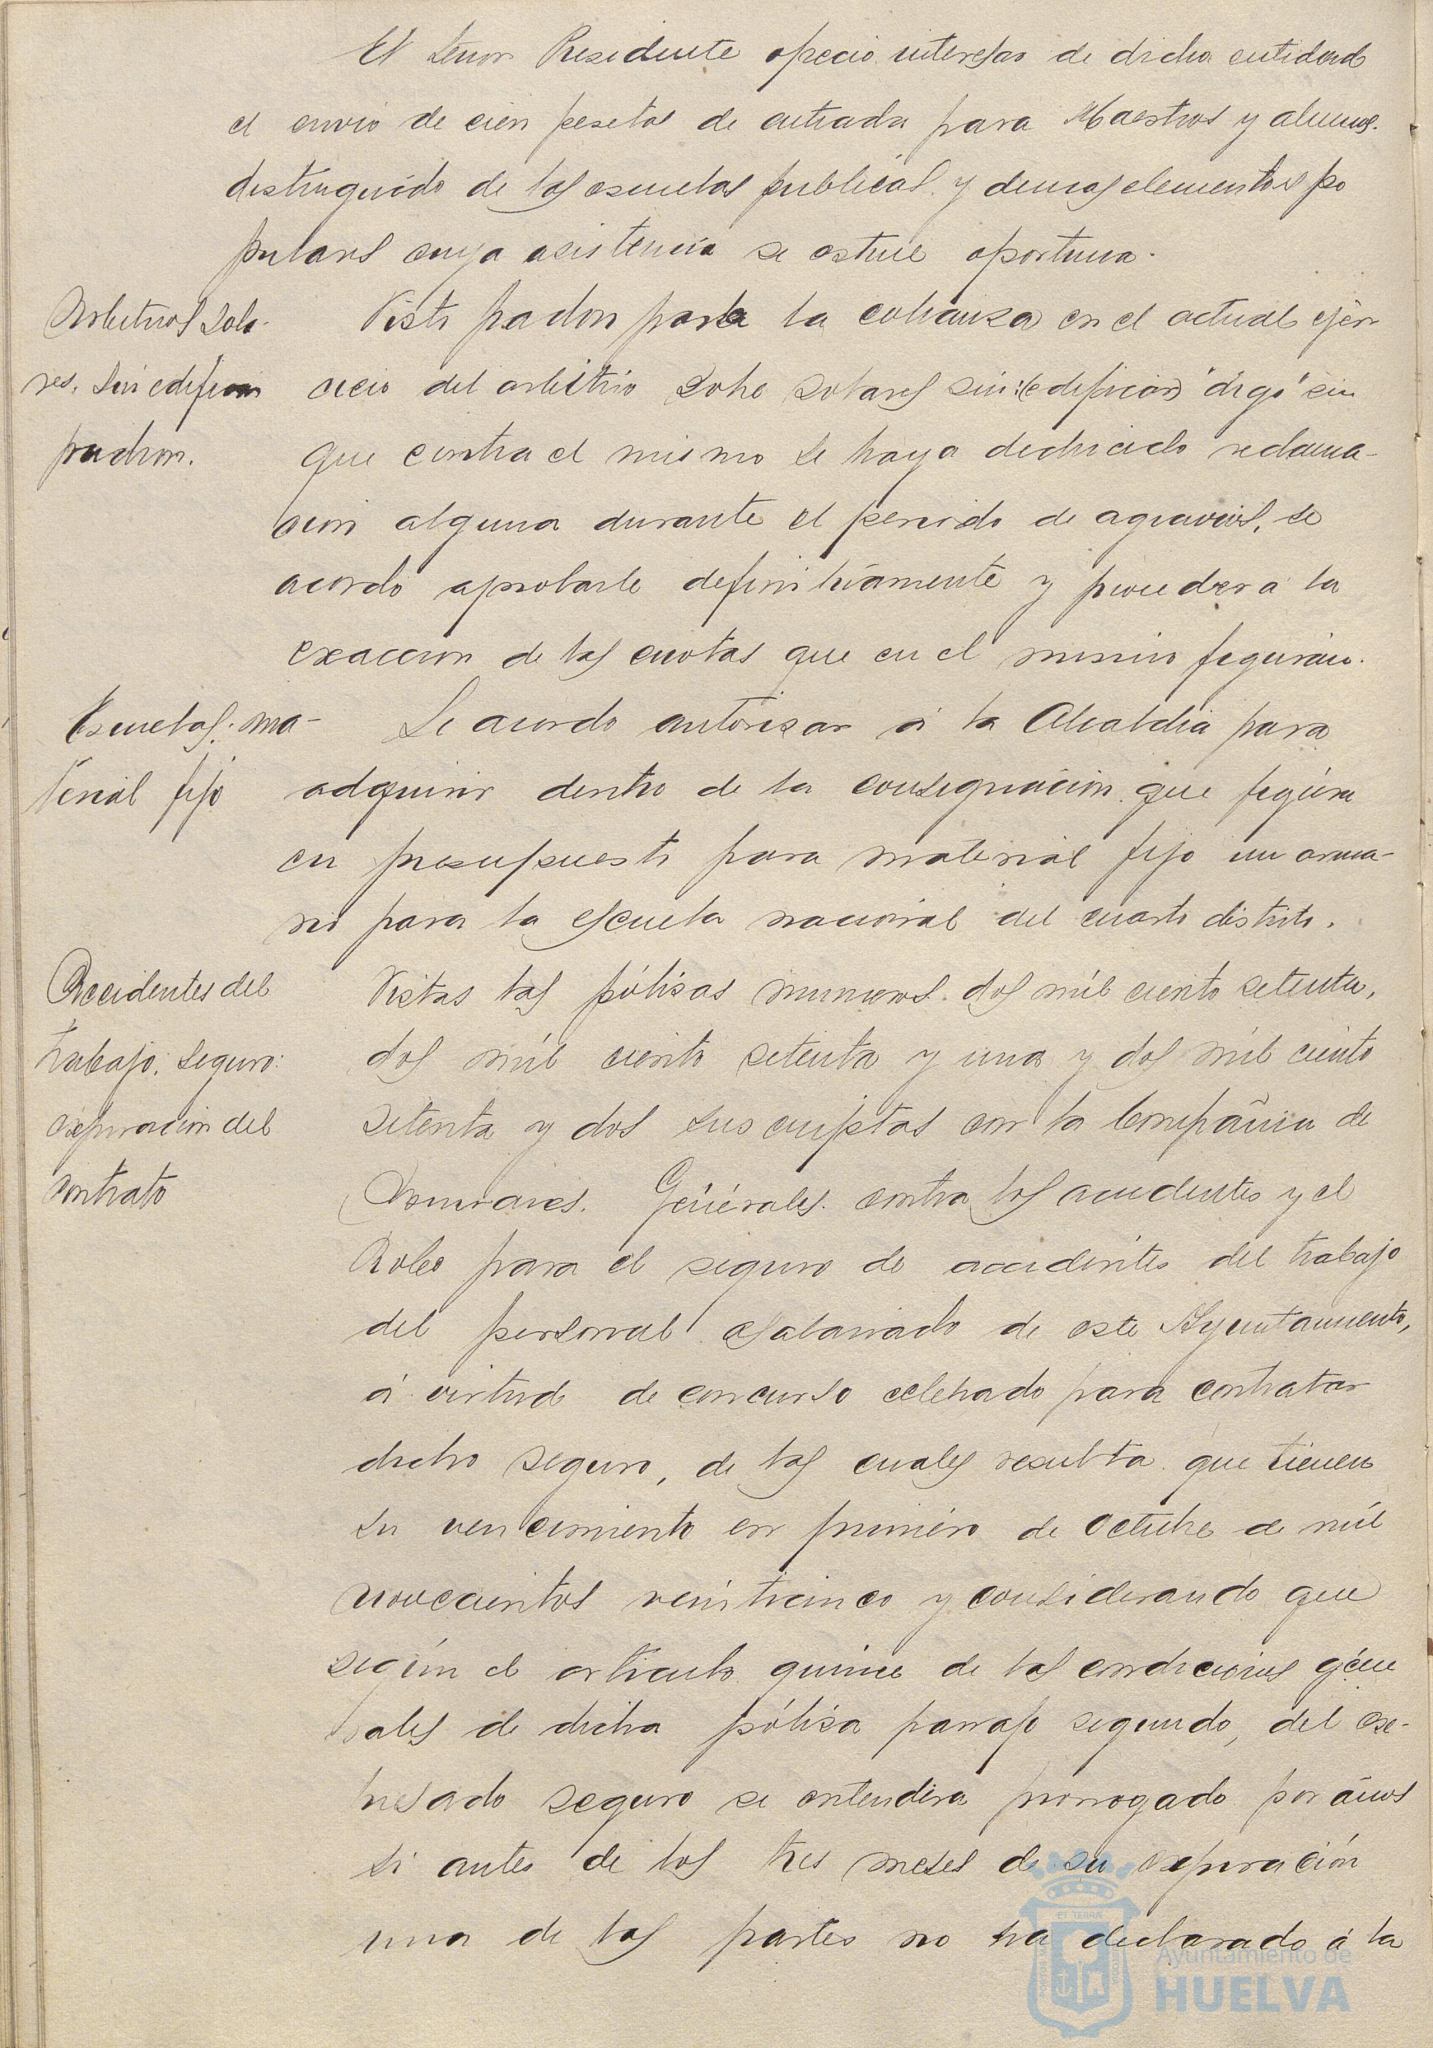 El Señor Presidente ofreció interesar de dicha entidad
el envio de cien pesetas de entrada para Maestros y alumnos
distinguido de las escuelas publicas y demas elementos po
pulares cuya asistencia se estime oportuna.
Arbitrios Sola-
res. sin edificar
padron.
Visto padron para la cobranza en el actual ejer
cicio del arbitrio sobre solares sin edificar "digo" sin
que contra el mismo se haya deducido reclama-
cion alguna durante el periodo de agravios, se
acordó aprobarle definitivamente y proceder a la
exaccion de las cuotas que en el mismo figuran.
Escuelas. ma-
terial fijo
Se acordó autorizar á la Alcaldia para
adquirir dentro de la consignación que figura
en presupuesto para material fijo un arma-
rio para la escuela nacional del cuarto distrito.
Accidentes del
trabajo. seguro:
expiracion del
contrato
Vistas las pólisas numeros dos mil ciento setenta,
dos mil ciento setenta y una y dos mil ciento
setenta y dos suscriptas con la Compañia de
Generales contra los accidentes y el
Robo para el seguro de accidentes del trabajo
del personal asalariado de este Ayuntamiento,
á virtud de concurso celebrado para contratar
dicho seguro, de las cuales resulta que tienen
su vencimiento en primero de Octubre de mil
novecientos veinticinco y considerando que
según el articulo quince de las condiciones géne
rales de dicha pólisa parrafo segundo, del ex-
presado seguro se entendera prorrogado por años
si antes de los tres meses de su expiración
una de las partes no ha declarado á la
Ayuntamiento de
HUELVA